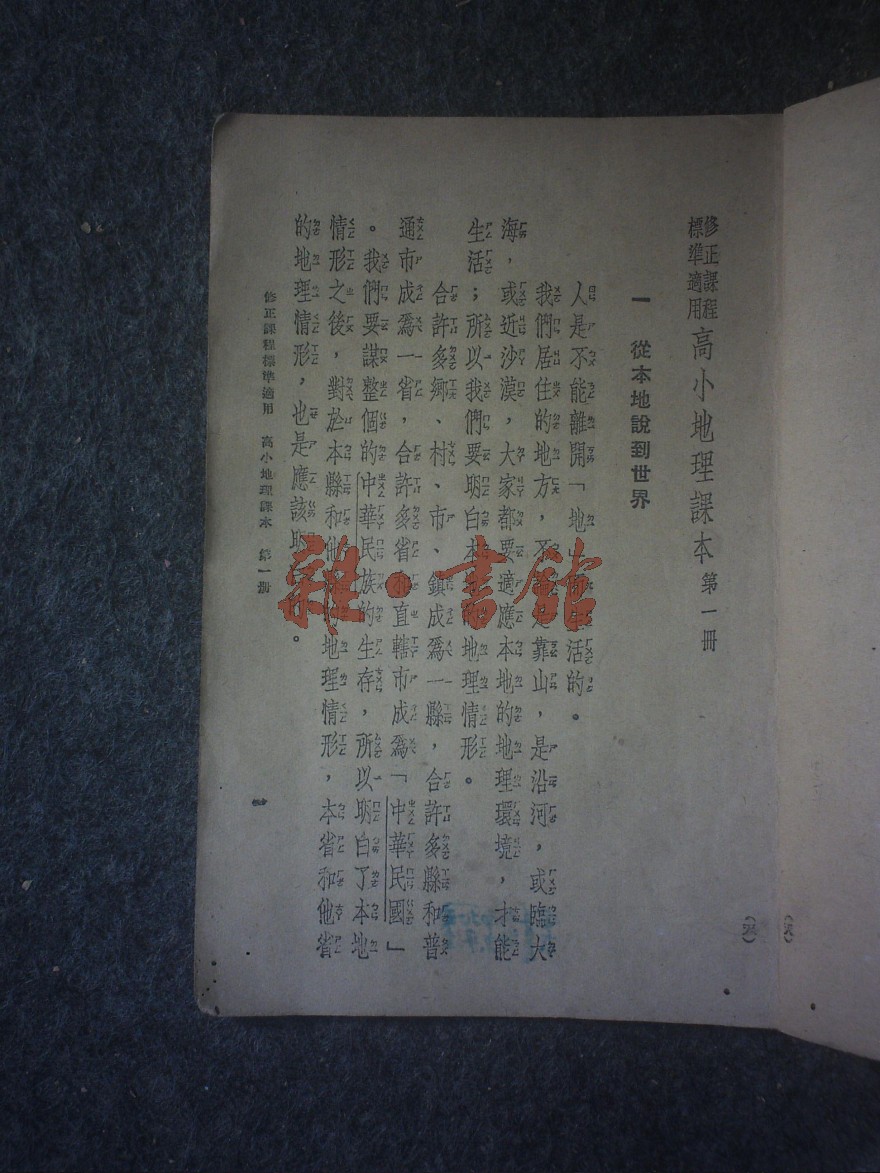 修正課程
標準適用
高小地理課本 第一冊
一 從本地說到世界
人是不能離開「地」生活的。
我們居住的地方，不靠山，是沿河，或臨大
海，或近沙漠，大家都要適應本地的地理環境，才能
生活；所以我們要明白本地理情形。
合許多鄉、村、市、鎮成爲一縣，合許多縣和普
通市成爲一省，合許多省和直轄市成爲「中華民國」
。我們要謀整個的中華民族的生存，所以明白了本地
情形之後，對於本縣和他地理情形，本省和他省
的地理情形，也是應該。
修正課程標準適用 高小地理課本 第一冊
雜·書館